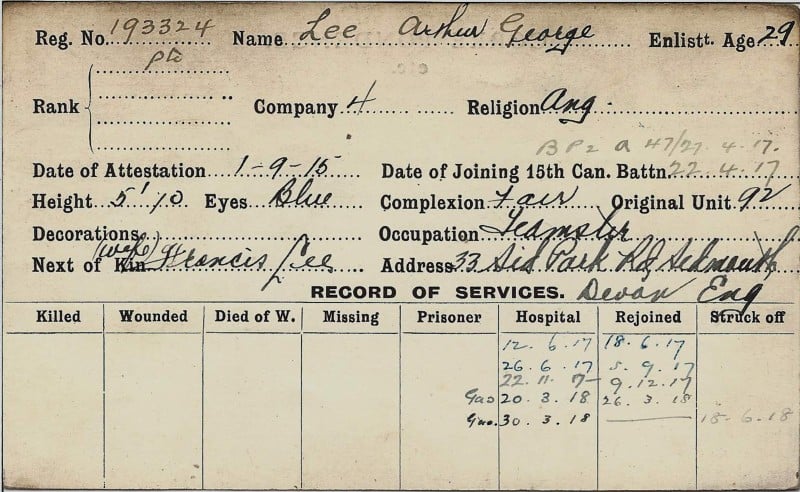 Reg. No. 193324 Name Lee Arthur George Enlistt. Age 29
Pte
Rank Company 4 Religion Ang.
BP2 a 47/27.4.17.
Date of Attestation 1-9-15 Date of Joining 15th Can. Battn. 22.4.17
Height 5' 10 Eyes Blue Complexion Fair Original Unit 92
Decorations Occupation Teamster
(wife)
Next of Kin Francis Lee Address 33 Sid Park Rd Sidmouth
RECORD OF SERVICES. Devon Eng
Killed Wounded Died of W. Missing Prisoner Hospital Rejoined Struck off
12.6.17 18.6.17
26.6.17 5.9.17
22.11.7 9.12.17
Gas 20.3.18 26.3.18
Gas. 30.3.18 18-6-18